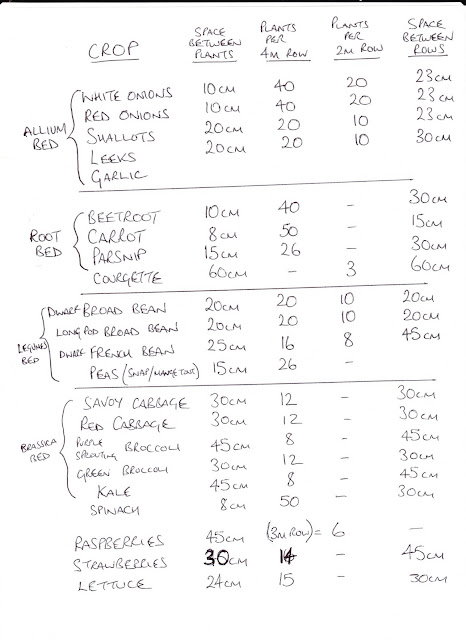 CROP SPACE BETWEEN PLANTS PLANTS PER 4M ROW PLANTS PER 2M ROW SPACE BETWEEN ROWS
ALLIUM BED
WHITE ONIONS 10CM 40 20 23CM
RED ONIONS 10CM 40 20 23CM
SHALLOTS 20CM 20 10 23CM
LEEKS 20CM 20 10 30CM
GARLIC
ROOT BED
BEETROOT 10CM 40 - 30CM
CARROT 8CM 50 - 15CM
PARSNIP 15CM 26 - 30CM
COURGETTE 60CM - 3 60CM
LEGUMES BED
DWARF BROAD BEAN 20CM 20 10 20CM
LONG POD BROAD BEAN 20CM 20 10 20CM
DWARF FRENCH BEAN 25CM 16 8 45CM
PEAS (SNAP/MANGETOUT) 15CM 26 -
BRASSICA BED
SAVOY CABBAGE 30CM 12 - 30CM
RED CABBAGE 30CM 12 - 30CM
PURPLE SPROUTING BROCCOLI 45CM 8 - 45CM
GREEN BROCCOLI 30CM 12 - 30CM
KALE 45CM 8 - 45CM
SPINACH 8CM 50 - 30CM
RASPBERRIES 45CM (3M ROW) = 6 -
STRAWBERRIES 30CM 14 - 45CM
LETTUCE 24CM 15 - 30CM